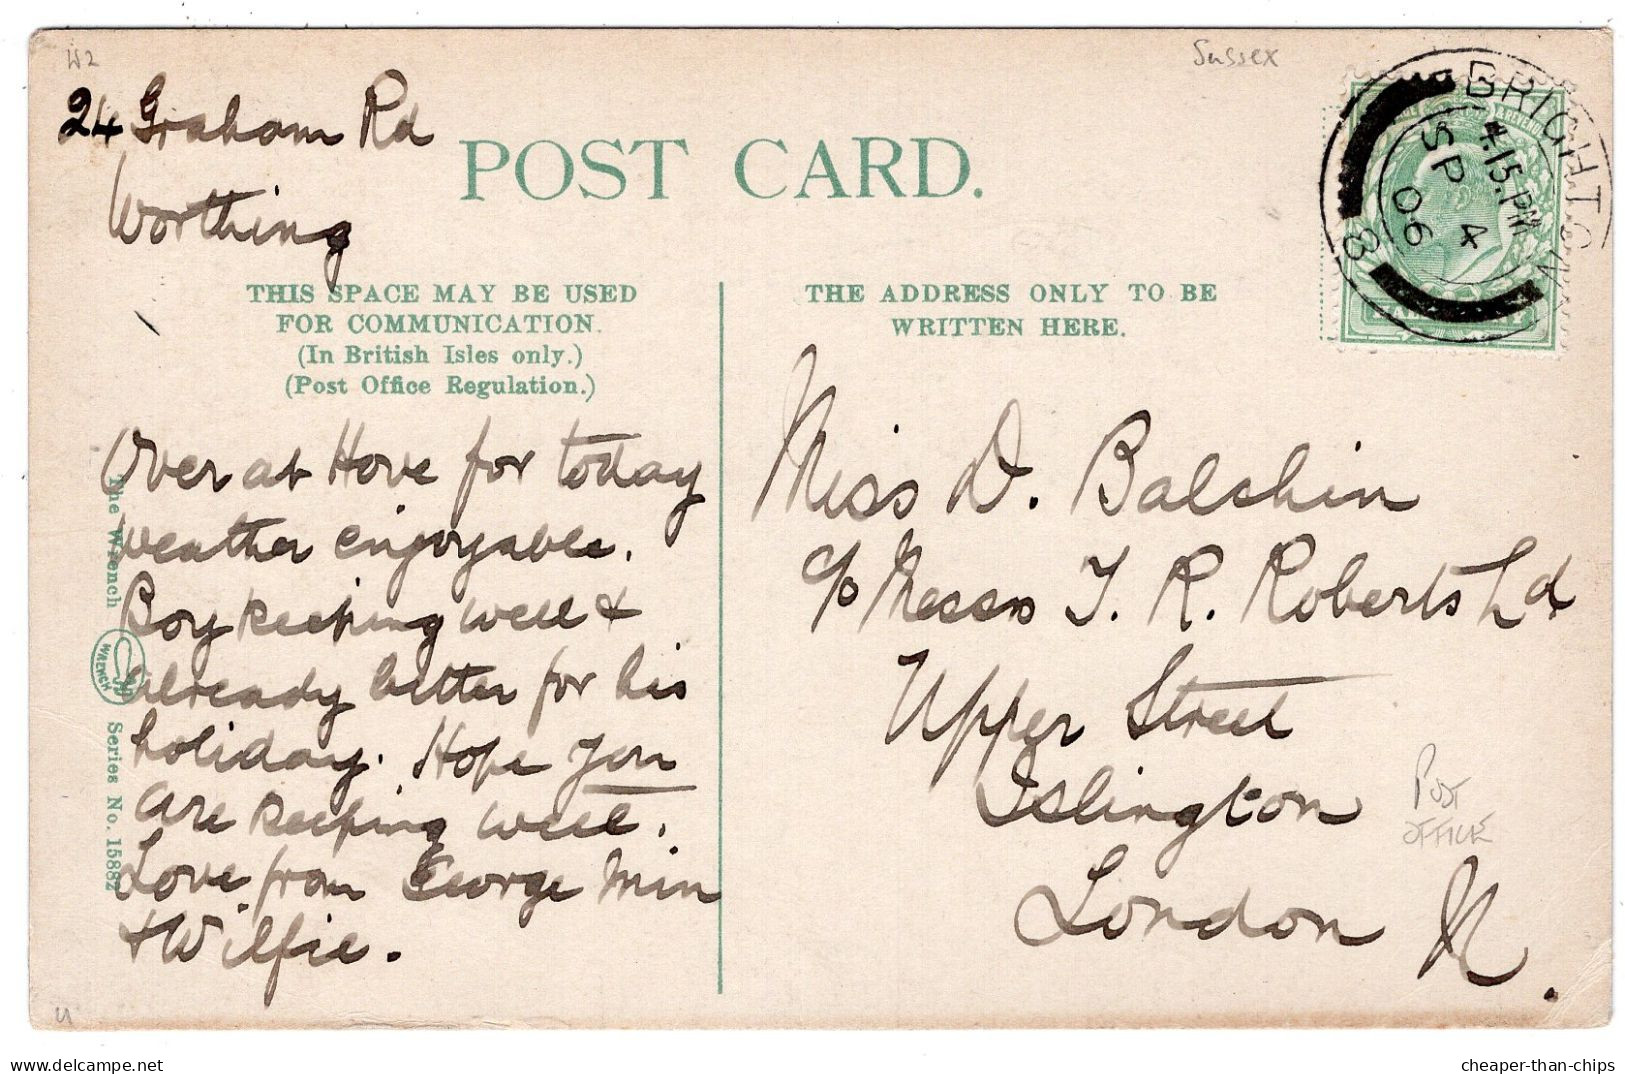 W2
Sussex
24 Graham Rd
Worthing
POST CARD.
BRIGHTON
4.15.PM
SP 4
06
8
THIS SPACE MAY BE USED
FOR COMMUNICATION.
(In British Isles only.)
(Post Office Regulation.)
THE ADDRESS ONLY TO BE
WRITTEN HERE.
Over at Hove for today
weather enjoyable.
Boy keeping well &
already better for his
holiday. Hope you
are keeping well.
Love from George Min
& Wilfie.
The Wrench
WRENCH
Series No. 15882
Miss D. Balchin
c/o Messrs T. R. Roberts Ld
Upper Street
Islington
London N.
POST
OFFICE
cheaper-than-chips
delcampe.net